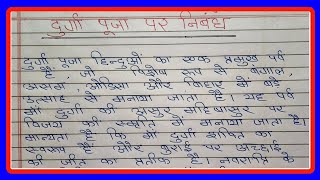 दुर्गा पूजा पर निबंध
दुर्गा पूजा हिन्दुओं का एक प्रमुख पर्व
है, जो विशेष रूप से बंगाल,
असम, ओडिसा और बिहार में बड़े
उत्साह से मनाया जाता है, यह पर्व
माँ दुर्गा की असुर महिषासुर पर
विजय की स्मृति में मनाया जाता है।
मान्यता है कि माँ दुर्गा शक्ति का
स्वरूप है और बुराई पर अच्छाई
की जीत का प्रतीक है। नवरात्रि के